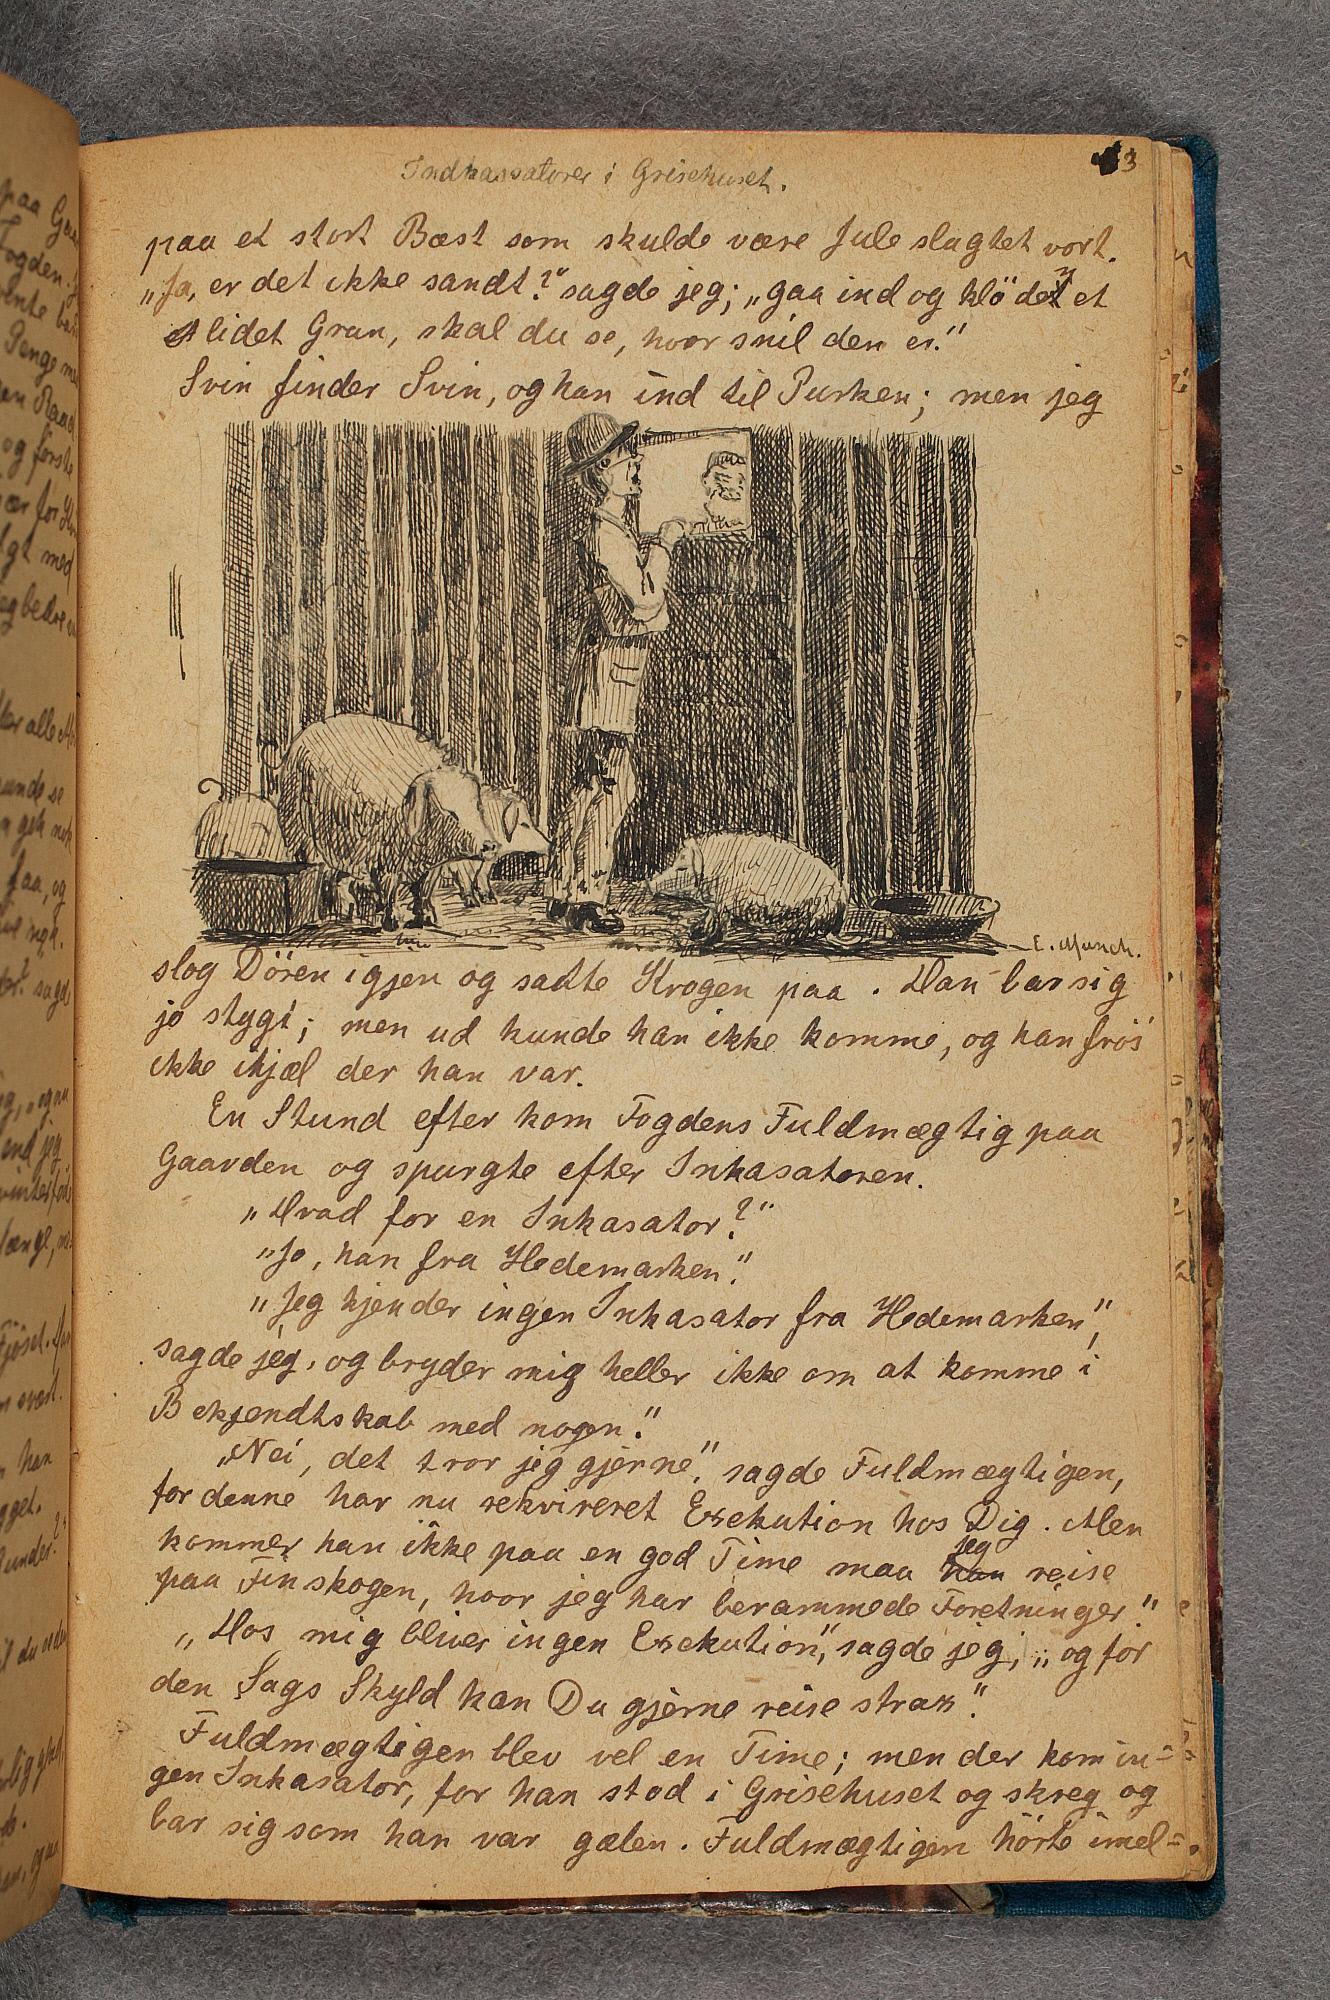 3
Indkassatorer i Grisehuset.
paa et stort Bæst som skulde være Juleslagtet vort.
„Ja, er det ikke sandt?" sagde jeg; „gaa ind og klö den et
lidet Gran, skal du se, hvor snil den er."
Svin finder Svin, og han ind til Purken; men jeg
E. Munch.
slog Dören igjen og satte Krogen paa. Han bar sig
jo stygt; men ud kunde han ikke komme, og han frös
ikke ihjæl der han var.
En Stund efter kom Fogdens Fuldmægtig paa
Gaarden og spurgte efter Inkasatoren.
„Hvad for en Inkasator?"
„Jo, han fra Hedemarken."
„Jeg kjender ingen Inkasator fra Hedemarken",
sagde jeg, og bryder mig heller ikke om at komme i
Bekjendtskab med nogen."
„Nei, det tror jeg gjerne", sagde Fuldmægtigen,
for denne har nu rekvireret Exekution hos Dig. Men
kommer han ikke paa en god Time maa han jeg reise
paa Finskogen, hvor jeg har berammede Forretninger."
„Hos mig bliver ingen Exekution", sagde jeg, „og for
den Sags Skyld kan Du gjerne reise strax."
Fuldmægtigen blev vel en Time; men der kom in=
gen Inkasator, for han stod i Grisehuset og skreg og
bar sig som han var gælen. Fuldmægtigen hörte imel=